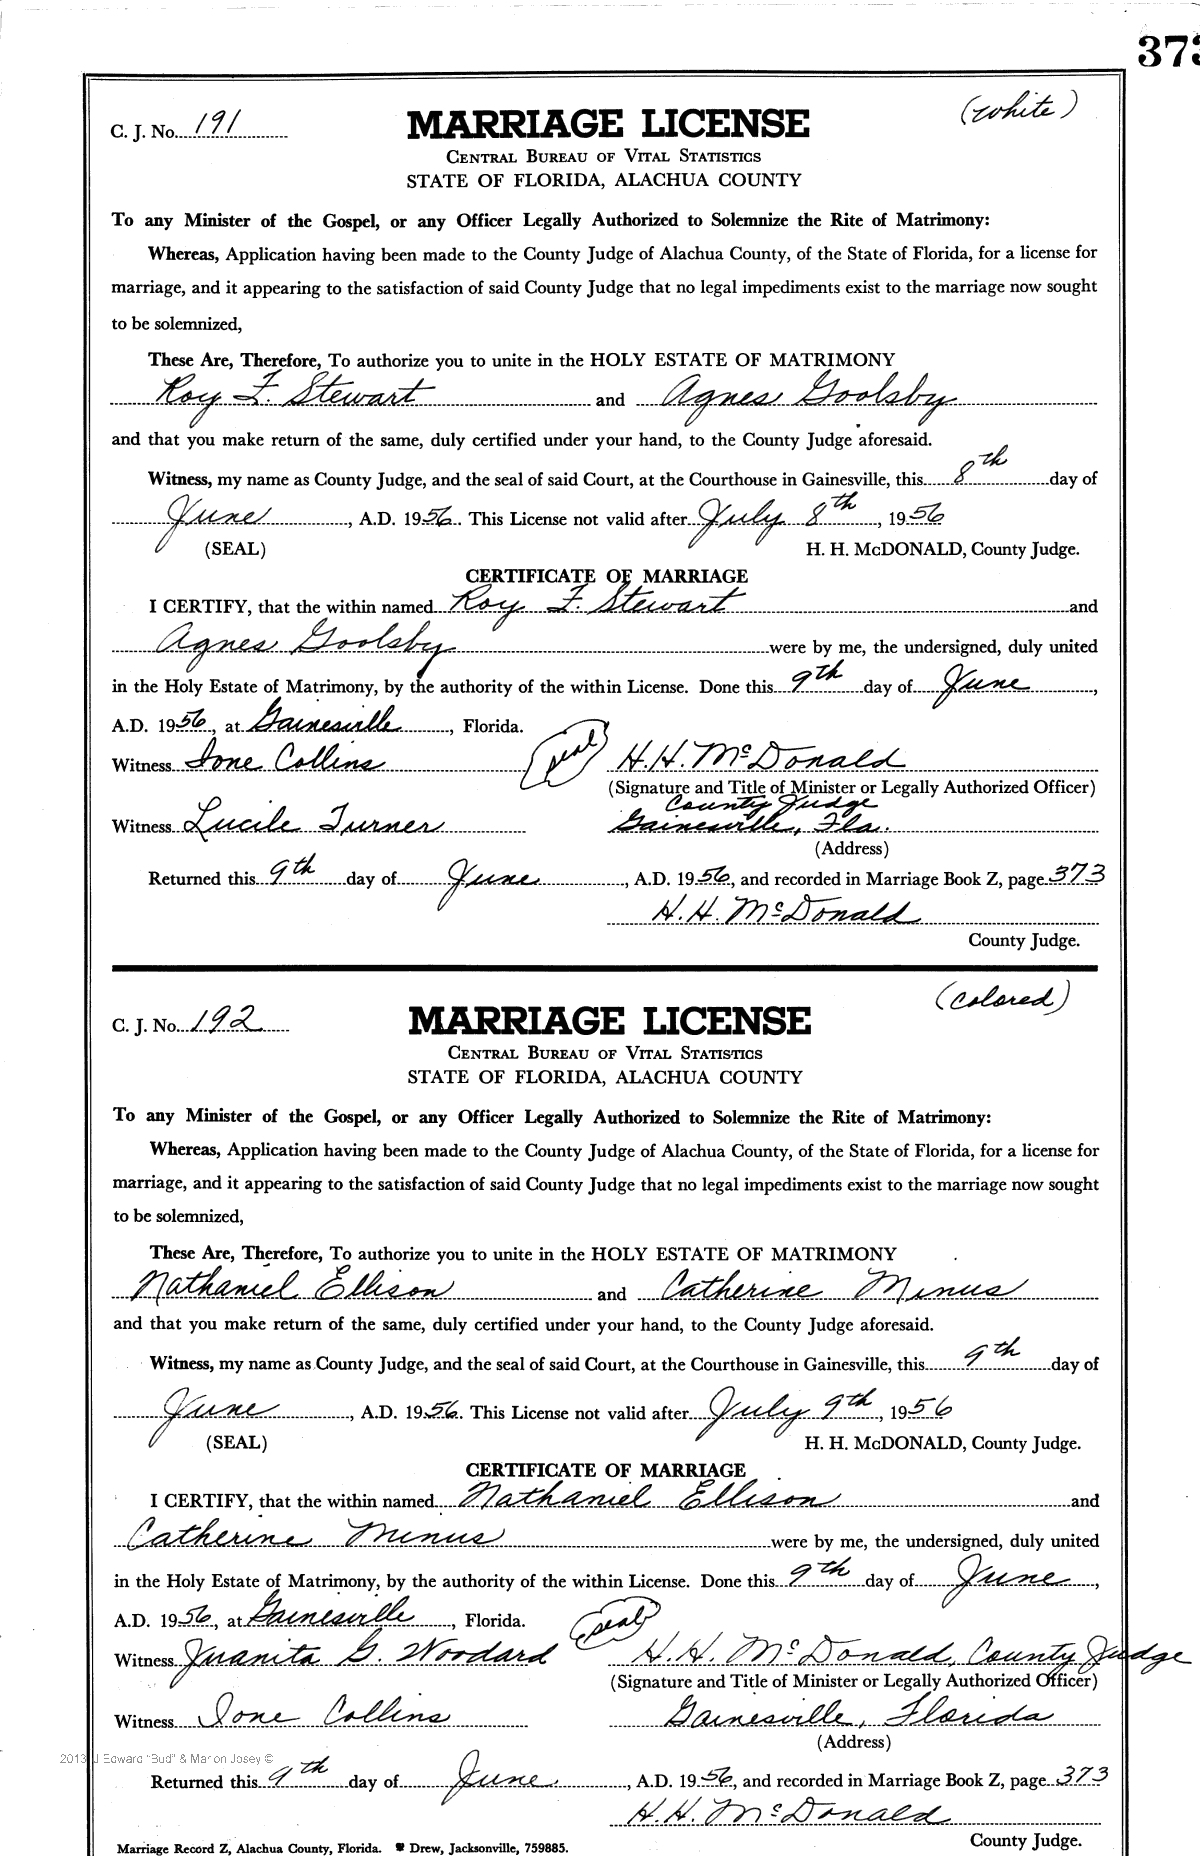 373
C. J. No. 191 MARRIAGE LICENSE (white)
CENTRAL BUREAU OF VITAL STATISTICS
STATE OF FLORIDA, ALACHUA COUNTY
To any Minister of the Gospel, or any Officer Legally Authorized to Solemnize the Rite of Matrimony:
Whereas, Application having been made to the County Judge of Alachua County, of the State of Florida, for a license for
marriage, and it appearing to the satisfaction of said County Judge that no legal impediments exist to the marriage now sought
to be solemnized,
These Are, Therefore, To authorize you to unite in the HOLY ESTATE OF MATRIMONY
Roy F. Stewart and Agnes Goolsby
and that you make return of the same, duly certified under your hand, to the County Judge aforesaid.
Witness, my name as County Judge, and the seal of said Court, at the Courthouse in Gainesville, this 8th day of
June, A.D. 1956. This License not valid after July 8th, 1956
(SEAL) H. H. McDONALD, County Judge.
CERTIFICATE OF MARRIAGE
I CERTIFY, that the within named Roy F. Stewart and
Agnes Goolsby were by me, the undersigned, duly united
in the Holy Estate of Matrimony, by the authority of the within License. Done this 9th day of June,
A.D. 1956, at Gainesville, Florida.
Witness Ione Collins (seal) H. H. McDonald
(Signature and Title of Minister or Legally Authorized Officer)
County Judge
Witness Lucile Turner Gainesville, Fla.
(Address)
Returned this 9th day of June, A.D. 1956, and recorded in Marriage Book Z, page 373
H. H. McDonald
County Judge.
C. J. No. 192 MARRIAGE LICENSE (colored)
CENTRAL BUREAU OF VITAL STATISTICS
STATE OF FLORIDA, ALACHUA COUNTY
To any Minister of the Gospel, or any Officer Legally Authorized to Solemnize the Rite of Matrimony:
Whereas, Application having been made to the County Judge of Alachua County, of the State of Florida, for a license for
marriage, and it appearing to the satisfaction of said County Judge that no legal impediments exist to the marriage now sought
to be solemnized,
These Are, Therefore, To authorize you to unite in the HOLY ESTATE OF MATRIMONY
Nathaniel Ellison and Catherine Minus
and that you make return of the same, duly certified under your hand, to the County Judge aforesaid.
Witness, my name as County Judge, and the seal of said Court, at the Courthouse in Gainesville, this 9th day of
June, A.D. 1956. This License not valid after July 9th, 1956
(SEAL) H. H. McDONALD, County Judge.
CERTIFICATE OF MARRIAGE
I CERTIFY, that the within named Nathaniel Ellison and
Catherine Minus were by me, the undersigned, duly united
in the Holy Estate of Matrimony, by the authority of the within License. Done this 9th day of June,
A.D. 1956, at Gainesville, Florida.
Witness Juanita G. Woodard (seal) H. H. McDonald, County Judge
(Signature and Title of Minister or Legally Authorized Officer)
Witness Ione Collins Gainesville, Florida
(Address)
2013 J Edward "Bud" & Marion Josey ©
Returned this 9th day of June, A.D. 1956, and recorded in Marriage Book Z, page 373
H. H. McDonald
County Judge.
Marriage Record Z, Alachua County, Florida. Drew, Jacksonville, 759885.